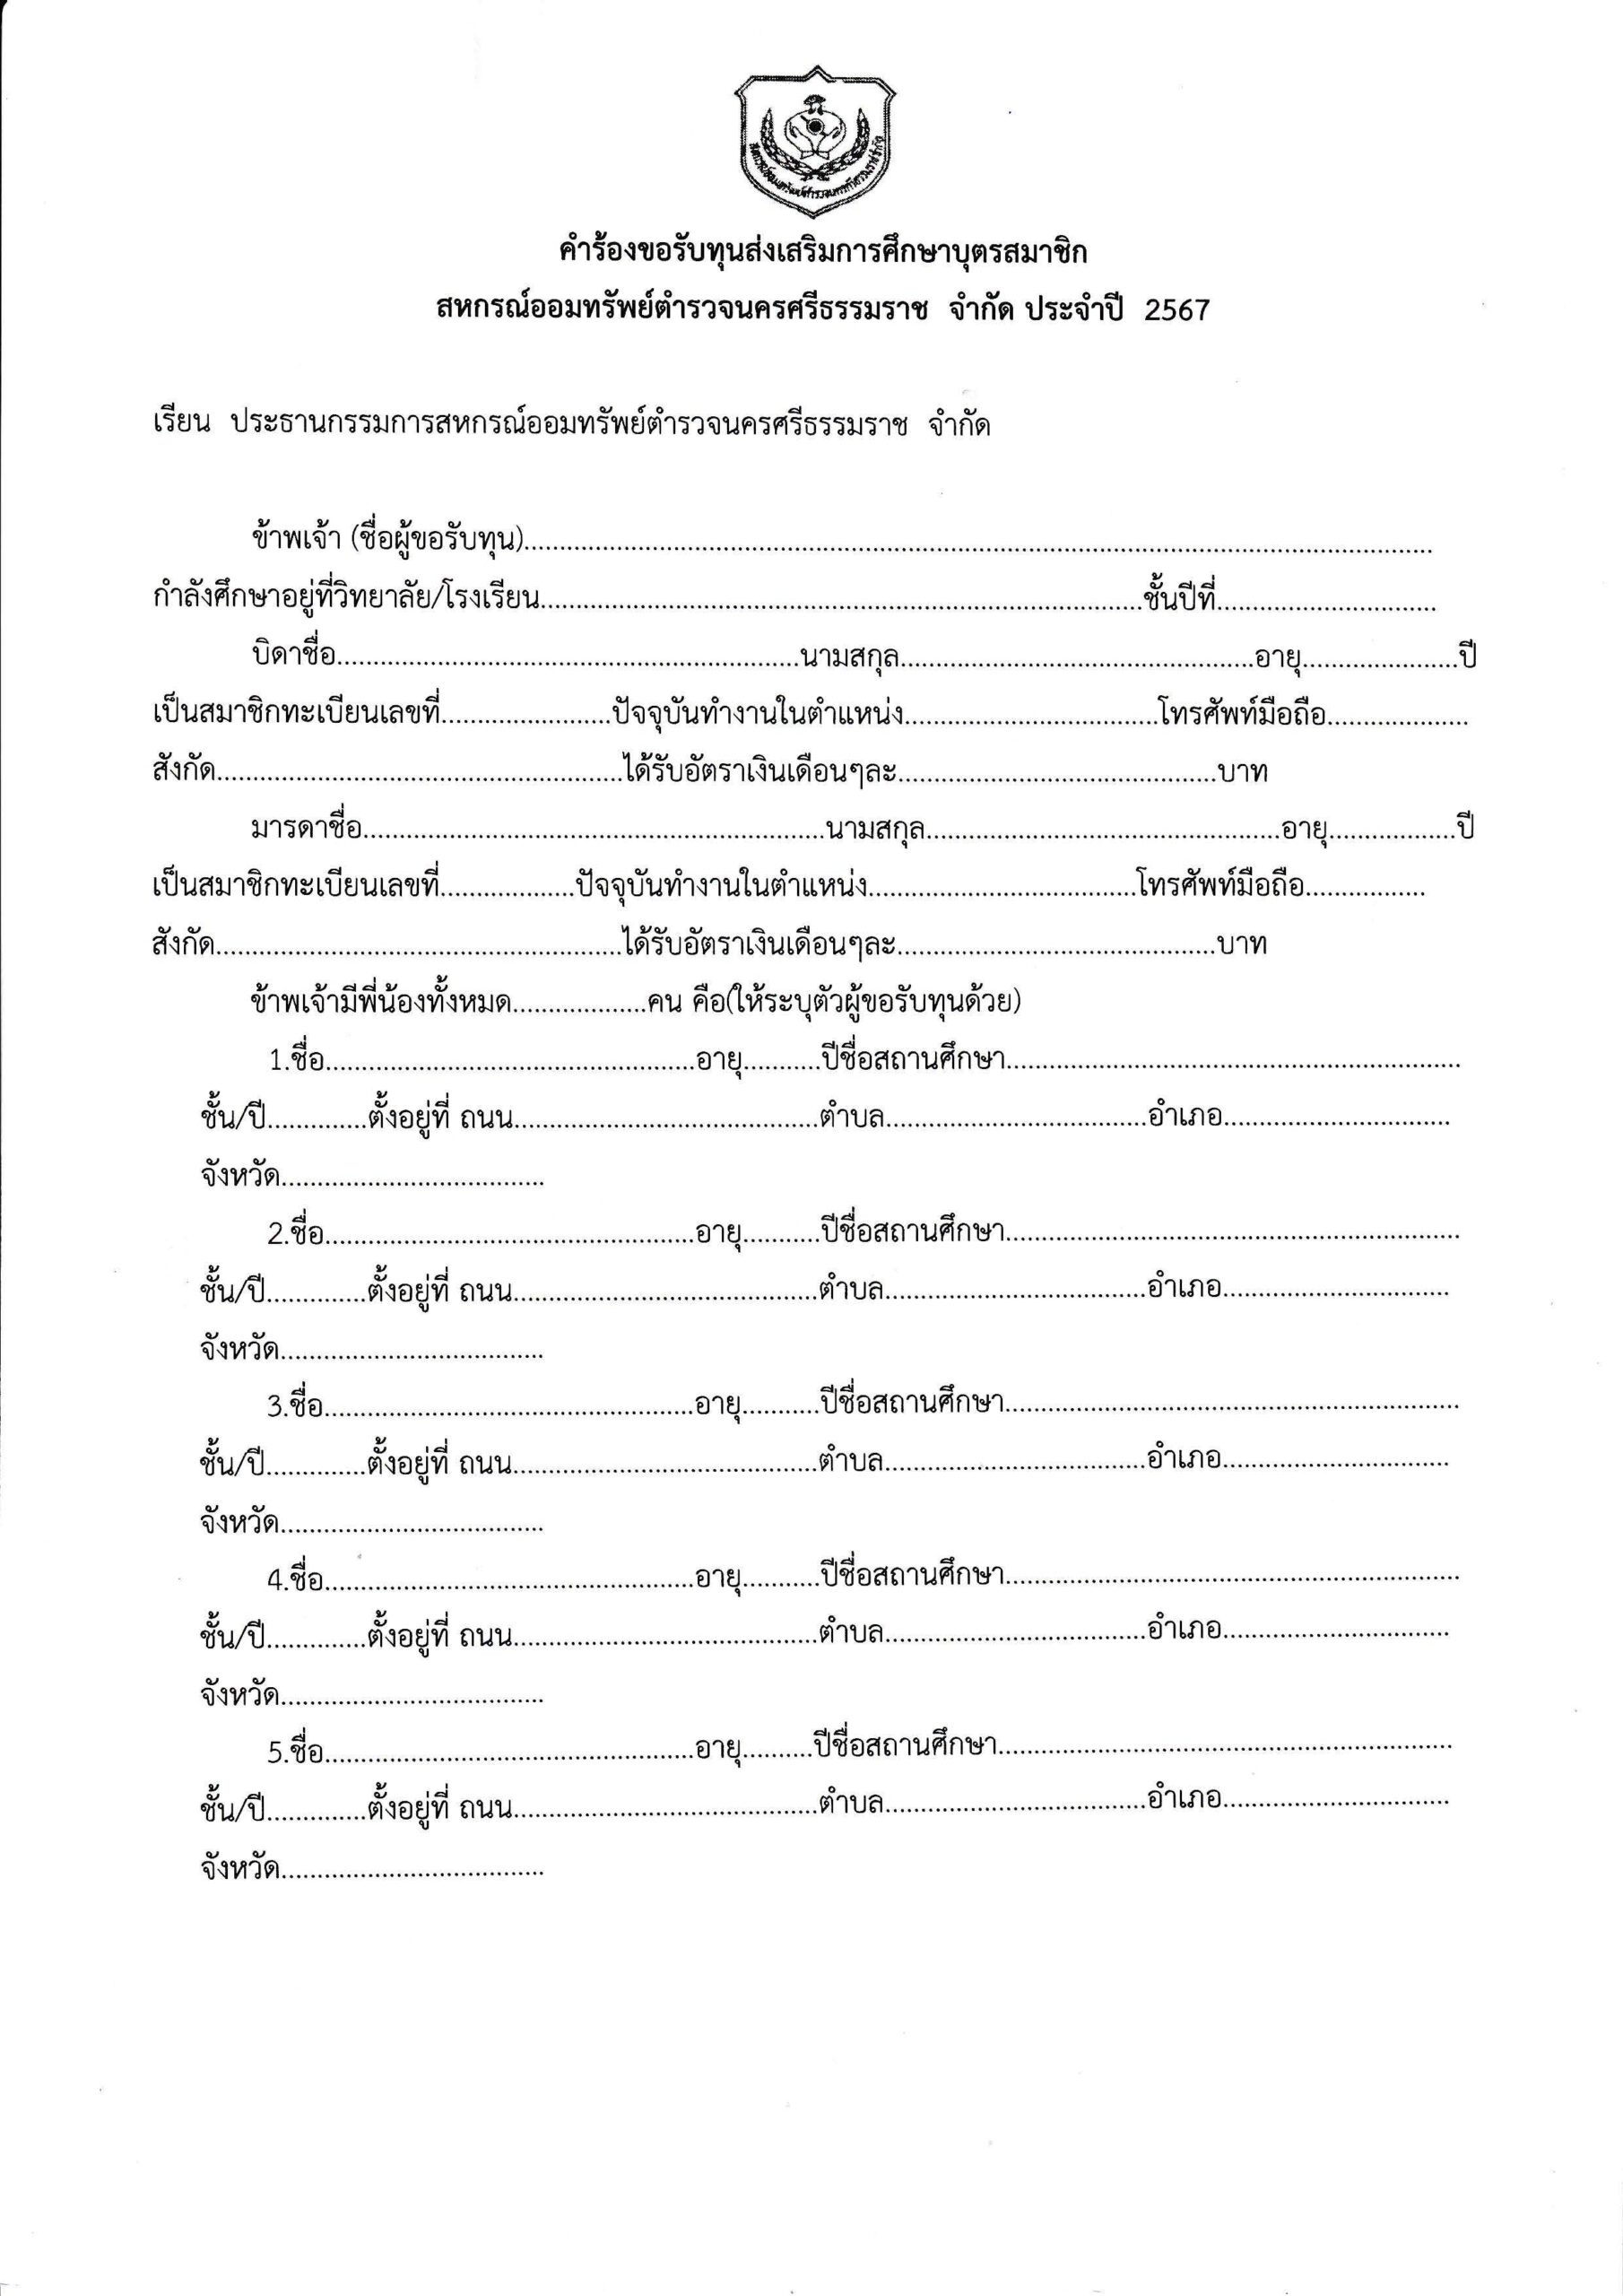 สหกรณ์ออมทรัพย์ตำรวจนครศรีธรรมราช จำกัด
คำร้องขอรับทุนส่งเสริมการศึกษาบุตรสมาชิก
สหกรณ์ออมทรัพย์ตำรวจนครศรีธรรมราช จำกัด ประจำปี 2567
เรียน ประธานกรรมการสหกรณ์ออมทรัพย์ตำรวจนครศรีธรรมราช จำกัด
ข้าพเจ้า (ชื่อผู้ขอรับทุน)..............................
กำลังศึกษาอยู่ที่วิทยาลัย/โรงเรียน..............................ชั้นปีที่..............................
บิดาชื่อ..............................นามสกุล..............................อายุ....................ปี
เป็นสมาชิกทะเบียนเลขที่....................ปัจจุบันทำงานในตำแหน่ง..............................โทรศัพท์มือถือ....................
สังกัด..............................ได้รับอัตราเงินเดือนๆละ..............................บาท
มารดาชื่อ..............................นามสกุล..............................อายุ..................ปี
เป็นสมาชิกทะเบียนเลขที่...................ปัจจุบันทำงานในตำแหน่ง..............................โทรศัพท์มือถือ.................
สังกัด..............................ได้รับอัตราเงินเดือนๆละ..............................บาท
ข้าพเจ้ามีพี่น้องทั้งหมด...................คน คือ(ให้ระบุตัวผู้ขอรับทุนด้วย)
1.ชื่อ..............................อายุ...........ปีชื่อสถานศึกษา..............................
ชั้น/ปี..............ตั้งอยู่ที่ ถนน..............................ตำบล..............................อำเภอ..............................
จังหวัด..............................
2.ชื่อ..............................อายุ...........ปีชื่อสถานศึกษา..............................
ชั้น/ปี..............ตั้งอยู่ที่ ถนน..............................ตำบล..............................อำเภอ..............................
จังหวัด..............................
3.ชื่อ..............................อายุ...........ปีชื่อสถานศึกษา..............................
ชั้น/ปี..............ตั้งอยู่ที่ ถนน..............................ตำบล..............................อำเภอ..............................
จังหวัด..............................
4.ชื่อ..............................อายุ...........ปีชื่อสถานศึกษา..............................
ชั้น/ปี..............ตั้งอยู่ที่ ถนน..............................ตำบล..............................อำเภอ..............................
จังหวัด..............................
5.ชื่อ..............................อายุ..........ปีชื่อสถานศึกษา..............................
ชั้น/ปี..............ตั้งอยู่ที่ ถนน..............................ตำบล..............................อำเภอ..............................
จังหวัด..............................